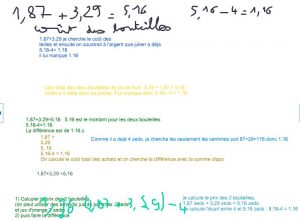 1,87 + 3,29 = 5,16
5,16 - 4 = 1,16
coût des bouteilles
1.87+3.29 je cherche le coût des
teilles et ensuite on soustrait à l'argent que julien a déja
5.16-4= 1.16
il lui manque 1.16
Cout total des deux bouteilles de jus de fruit : 3,29 + 1,87 = 5,16
julien a 4 zeds dans sa poche, il lui manque donc 1,16 zeds
1.87+3.29=5.16 5.16 est le montant pour les deux bouteilles
5.16-4=1.16
La différence est de 1.16 z.
1.87
+
3.29
5.16
4
1.16
Comme il a déjà 4 zeds, je cherche les seulement les centimes soit 87+29=116 donc 1.16
On calcule le coût total des achats et on cherche la différence avec la somme dispo
1.87+3.29 =5.16
1) Calculer le prix des 2 bouteilles
et jus d'orange
2) puis faire la différence
3,29) - 4
je calcule le prix des 2 bouteilles,
1.87 zeds + 3.29 zeds = 5.16 zeds,
je calcule l'écart entre 4 et 5.16 zeds = 1.16 zeds